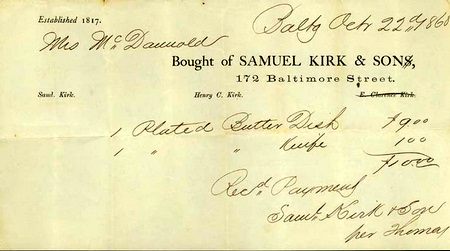 Established 1817.
Balto Octr 22d 1868
Mrs Mc Dannold
Bought of SAMUEL KIRK & SON,
172 Baltimore Street.
Saml. Kirk. Henry C. Kirk. E. Clarence Kirk.
1 Plated Butter Dish $9 00
1 " " Knife 1 00
$10 00
Recd. Payment
Saml Kirk & Son
per Thomas